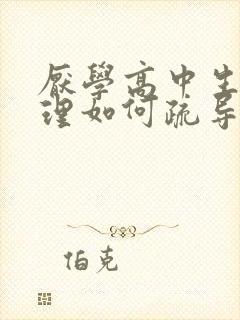 厌學高中生
理如何疏导
伯克